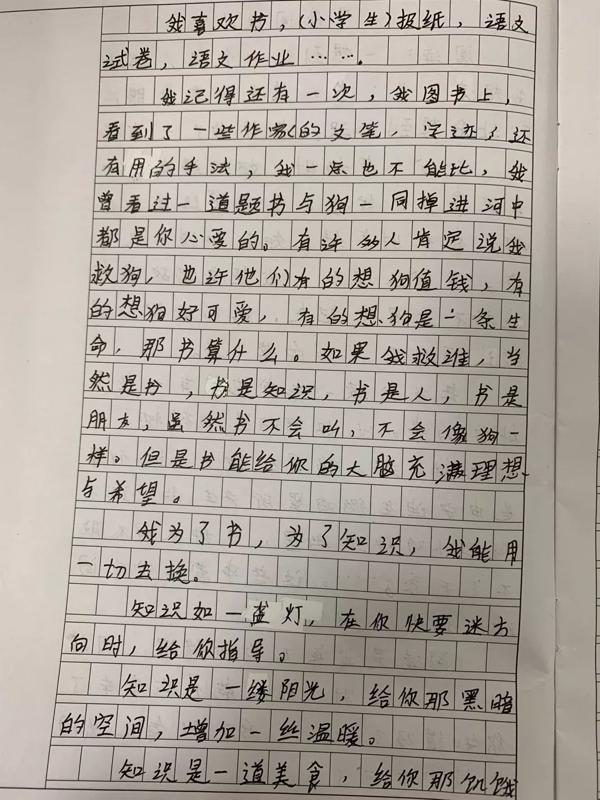 我喜欢书，(小学生)报纸，语文
试卷，语文作业……。
我记得还有一次，我图书上，
看到了一些作家(的文笔，字迹，还
有用的手法，我一点也不能比，我
曾看过一道题书与狗一同掉进河中
都是你心爱的。有许多人肯定说我
救狗，也许他们有的想狗值钱，有
的想狗好可爱，有的想狗是一条生
命，那书算什么。如果我救谁，当
然是书，书是知识，书是人，书是
朋友，虽然书不会叫，不会像狗一
样。但是书能给你的大脑充满理想
与希望。
我为了书，为了知识，我能用
一切去换。
知识如一盏灯，在你快要迷方
向时，给你指导。
知识是一缕阳光，给你那黑暗
的空间，增加一丝温暖。
知识是一道美食，给你那饥饿